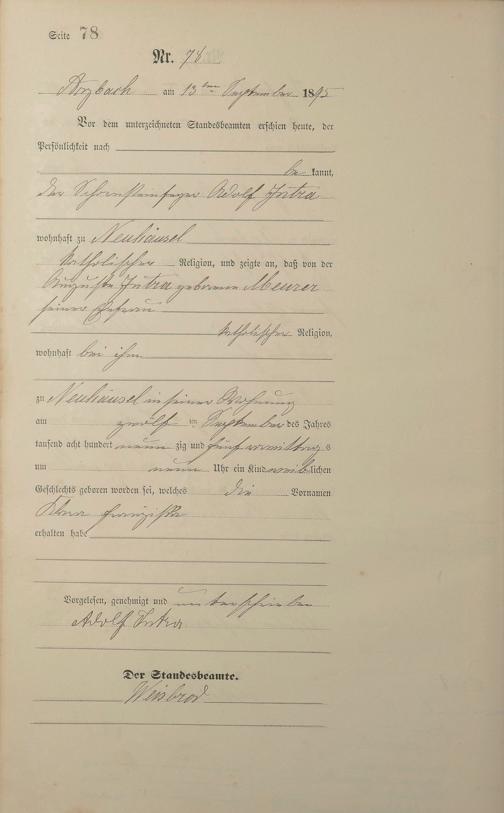 Seite 78
Nr. 78
Arzbach am 13ten September 1895
Vor dem unterzeichneten Standesbeamten erschien heute, der
Persönlichkeit nach
be kannt,
der Schornsteinfeger Adolf Intra
wohnhaft zu Neuhäusel
katholischer Religion, und zeigte an, daß von der
Auguste Intra geborene Meurer
seiner Ehefrau
katholischer Religion,
wohnhaft bei ihm
zu Neuhäusel in seiner Wohnung
am zwölf ten September des Jahres
tausend acht hundert neun zig und fünf vormittag s
um neun Uhr ein Kind weib lichen
Geschlechts geboren worden sei, welches die Vornamen
Klara Franziska
erhalten habe
Vorgelesen, genehmigt und unterschrieben
Adolf Intra
Der Standesbeamte.
Weisbrod